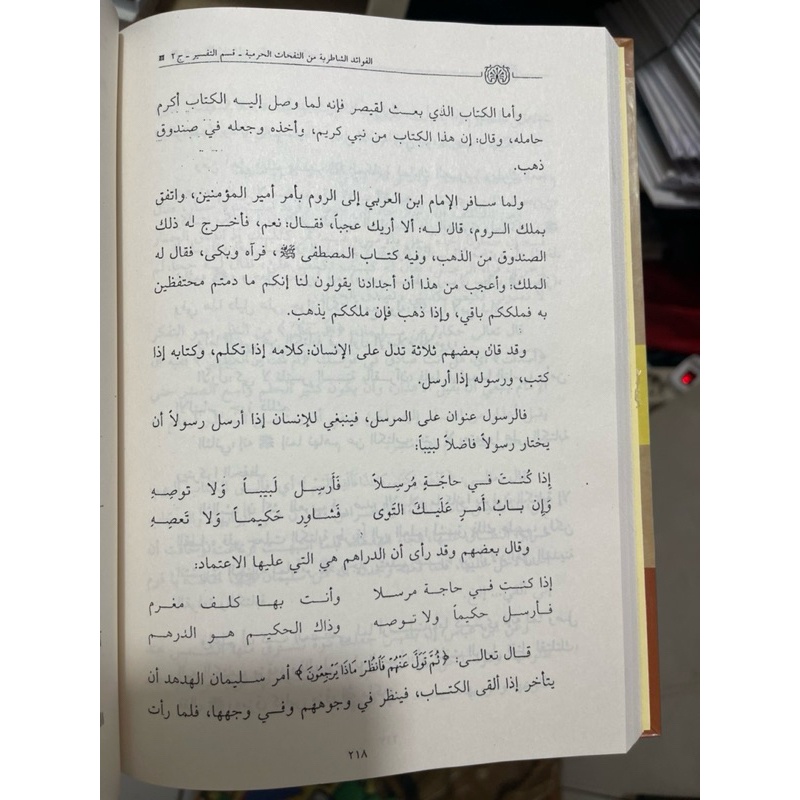 الفوائد الشاطرية من النفحات الحرمية - قسم التفسير - ج ٢
وأما الكتاب الذي بعث لقيصر فإنه لما وصل إليه الكتاب أكرم
حامله، وقال: إن هذا الكتاب من نبي كريم، وأخذه وجعله في صندوق
ذهب.
ولما سافر الإمام ابن العربي إلى الروم بأمر أمير المؤمنين، واتفق
بملك الروم، قال له: ألا أريك عجباً، فقال: نعم، فأخرج له ذلك
الصندوق من الذهب، وفيه كتاب المصطفى ﷺ، فرآه وبكى، فقال له
الملك: وأعجب من هذا أن أجدادنا يقولون لنا إنكم ما دمتم محتفظين
به فملككم باقي، وإذا ذهب فإن ملككم يذهب.
وقد قان بعضهم ثلاثة تدل على الإنسان: كلامه إذا تكلم، وكتابه إذا
كتب، ورسوله إذا أرسل.
فالرسول عنوان على المرسل، فينبغي للإنسان إذا أرسل رسولاً أن
يختار رسولاً فاضلاً لبيباً:
إذا كُنتَ في حاجَةٍ مُرسِلاً فَأَرسِل لَبيباً وَلا توصِهِ
وَإِن بابُ أَمرٍ عَلَيكَ التَوى فَشاوِر حَكيماً وَلا تَعصِهِ
وقال بعضهم وقد رأى أن الدراهم هي التي عليها الاعتماد:
إذا كنت في حاجة مرسلا وأنت بها كلف مغرم
فأرسل حكيماً ولا توصه وذاك الحكيم هو الدرهم
قال تعالى: ﴿ثُمَّ تَوَلَّ عَنْهُمْ فَانْظُرْ مَاذَا يَرْجِعُونَ﴾ أمر سليمان الهدهد أن
يتأخر إذا ألقى الكتاب، فينظر في وجوههم وفي وجهها، فلما رأت
٢١٨